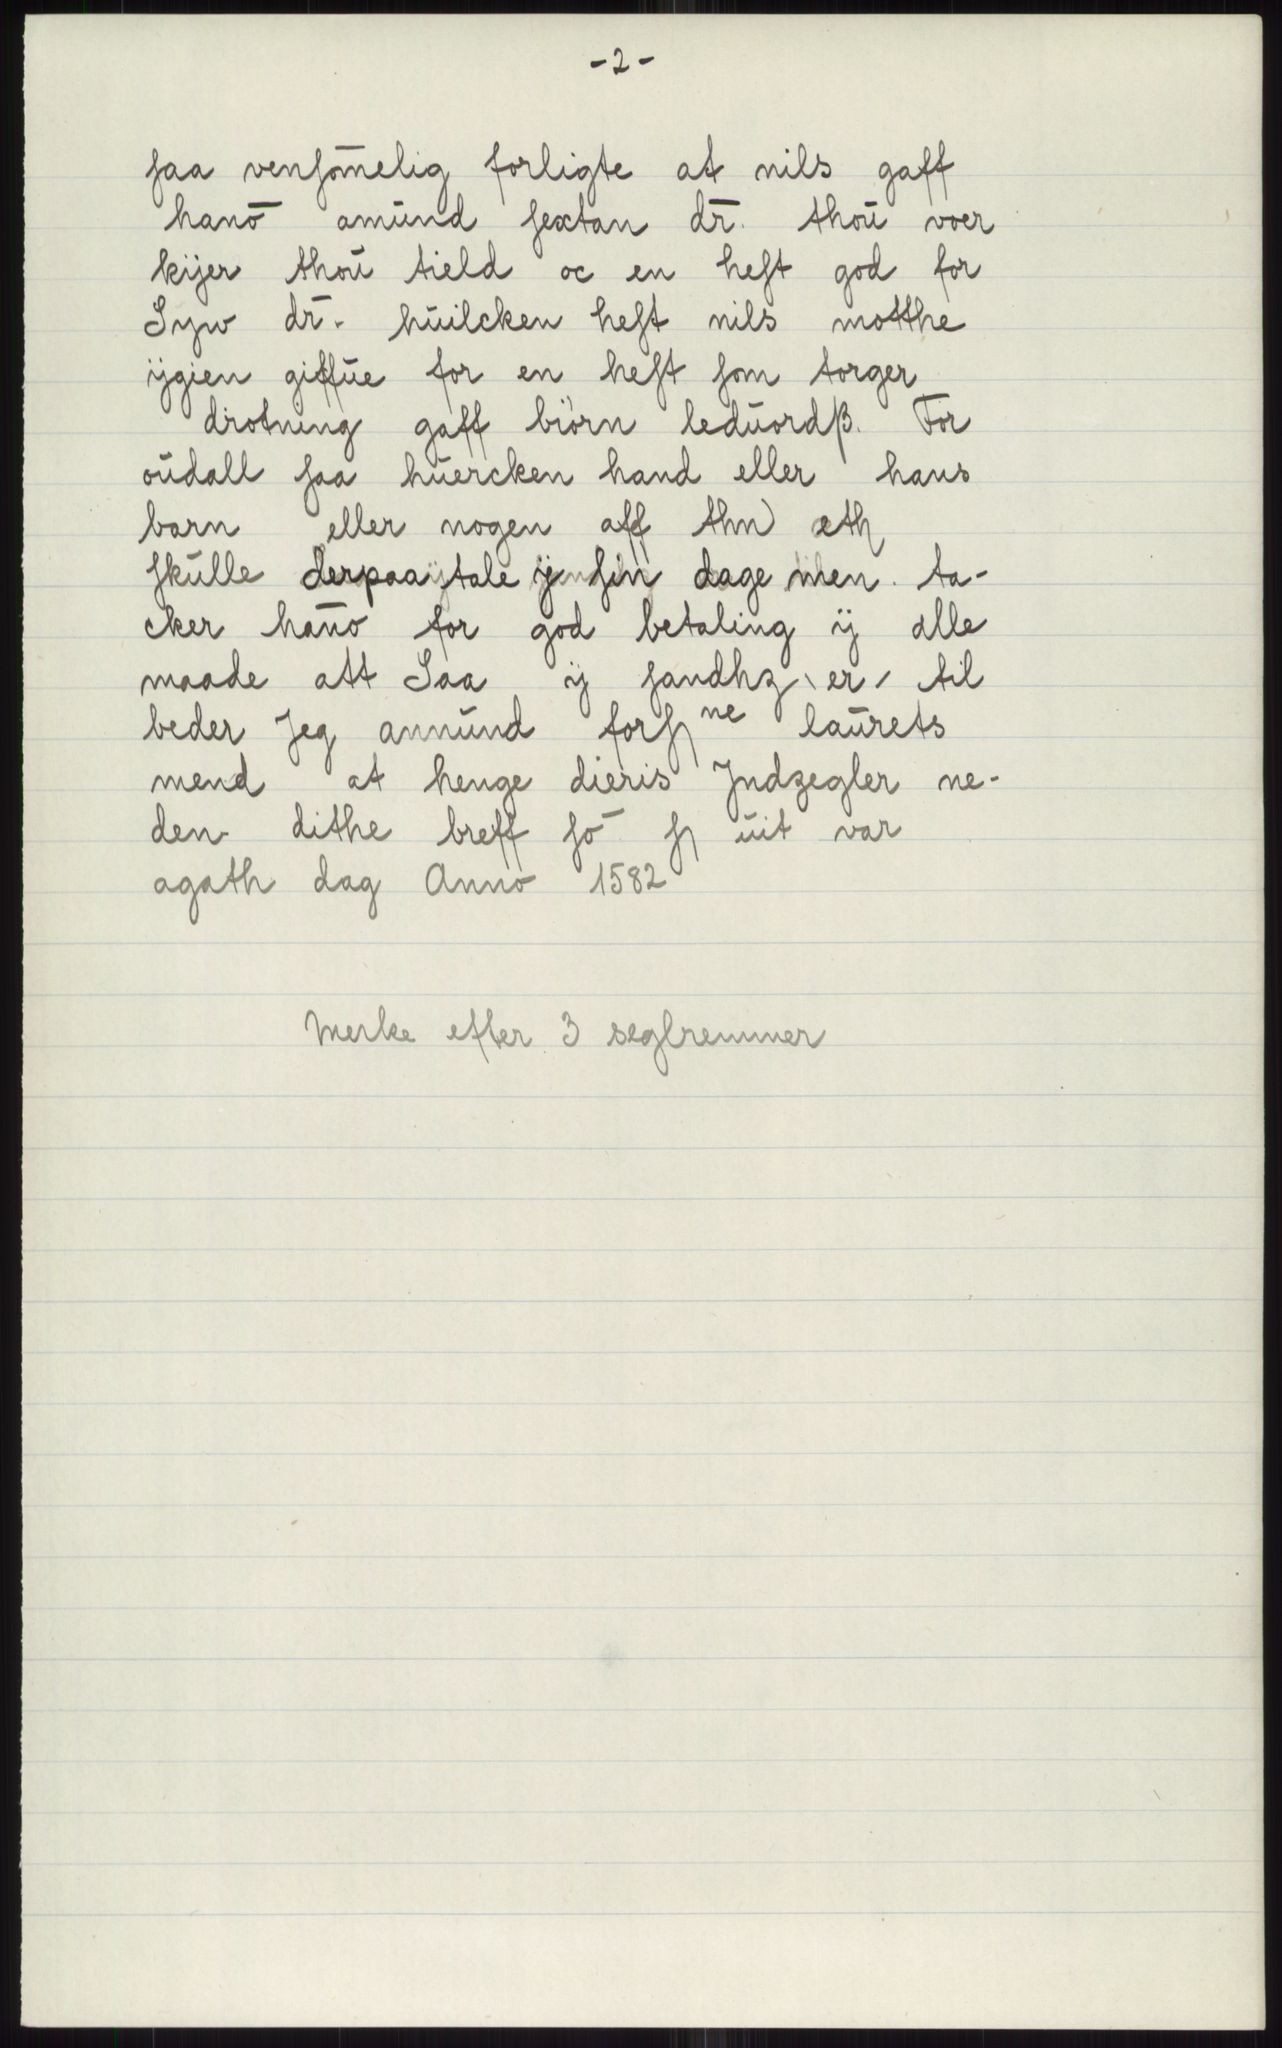 -2-
ſaa venſōmelig forligte at nils gaff
hanō amūnd ſextan dr̄. thoū voer
kijer thoū tield oc en heſt god for
Syw dr̄. hūilcken heſt nils motthe
ÿgien giffūe for en heſt ſom torger
drotning gaff biörn ledūordß. For
oūdall ſaa hūercken hand eller hans
barn eller nogen aff thn eth
ſkūlle derpaa tale ÿ ſin dage men. ta-
cker hanō for god betaling ÿ alle
maade att Saa ÿ ſandhz er til
beder Jeg annūnd forſ ne laūrets
mend at henge dieris Jndzegler ne-
den dithe breff ſō ſ ūit var
agath dag Anno 1582
Merke efter 3 seglremmer